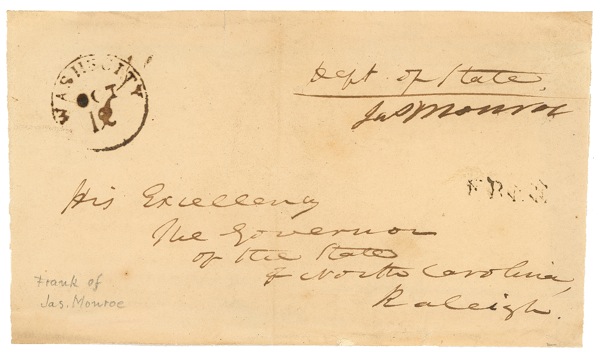 WASH. CITY
OCT
12
Dept. of State,
Jas Monroe
FREE
His Excellency
The Governor
of the State
of North Carolina,
Raleigh.
Frank of
Jas. Monroe